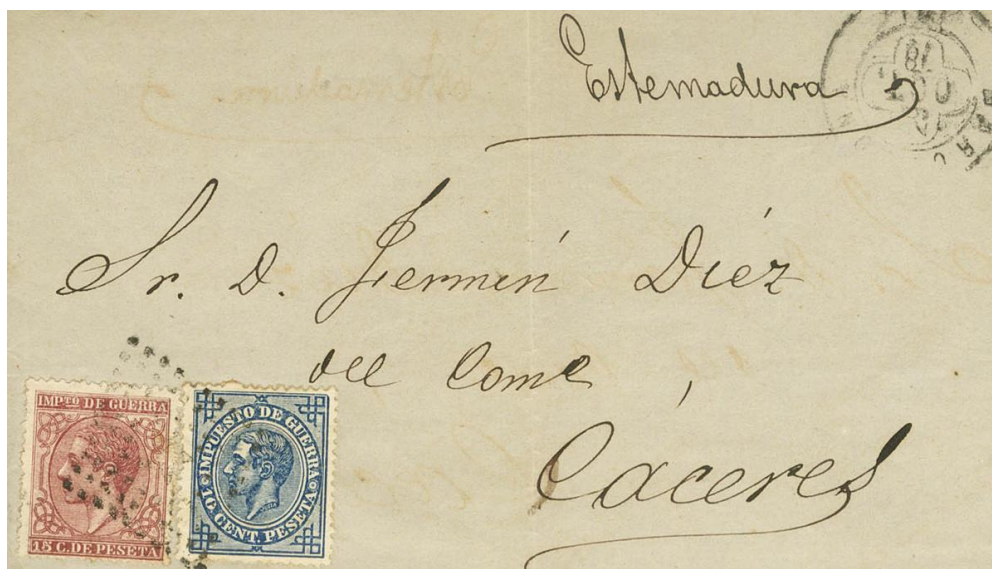 Estemadura
Sr. D. Fermín Díez
del Come
Cáceres
IMPTO DE GUERRA
15 C. DE PESETA
IMPUESTO DE GUERRA
10 CENT. PESETA
18
OCT